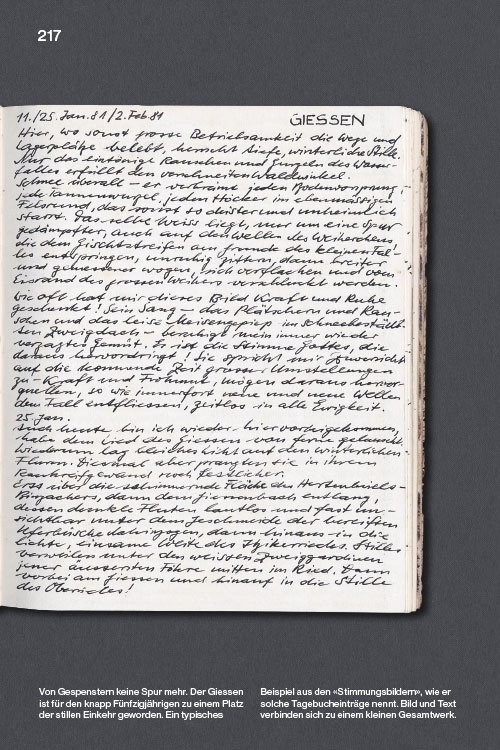 217
11./25. Jan. 81 / 2. Feb. 81 GIESSEN
Hier, wo sonst grosse Betriebsamkeit die Wege und
Lagerplätze belebt, herrscht tiefe, winterliche Stille.
Nur das eintönige Rauschen und Gurgeln des Wasser-
falles erfüllt den verschneiten Waldwinkel.
Schnee überall – er verbrämt jeden Bodenvorsprung,
jede Tannenwurzel, jeden Höcker im ebenmässigen
Felsrund, das sonst so düster und unheimlich
starrt. Das selbe Weiss liegt, nur um eine Spur
gedämpfter, auch auf den Wellen des Weiherchens
die dem Gischtstreifen am Grunde des kleinen Fal-
les entspringen, unruhig zittern, dann breiter
und gemessener wogen, sich verflachen und vom
Eisrand des grossen Weihers verschluckt werden.
Wie oft hat mir dieses Bild Kraft und Ruhe
geschenkt! Sein Sang – das Plätschern und Rau-
schen und das leise Meisengepiep im schneebestäub-
ten Zweigdach – beruhigt mein immer wieder
verzagtes Gemüt. Es ist die Stimme Gottes, die
daraus hervordringt! Sie spricht mir Zuversicht
auf die kommende Zeit grosser Umstellungen
zu – Kraft und Frohmut, mögen daraus hervor-
quellen, so wie immerfort neue und neue Wellen
dem Fall entfliessen, zeitlos – in alle Ewigkeit.
25. Jan.
Auch heute bin ich wieder hier vorbeigekommen,
habe dem Lied des Giessen von ferne gelauscht.
Wiederum lag bleiches Licht auf den winterlichen
Fluren. Diesmal aber prangten sie in ihrem
Rauhreifgewand noch festlicher.
Erst über die schimmernde Fläche des
dann dem entlang,
dessen dunkle Fluten lautlos und fast un-
sichtbar unter dem Geschmeide der bereiften
Uferbüsche dahinzogen, dann hinaus in die
lichte, einsame Weite des Itzikerriedes. Stilles
verweilen unter den weissen Zweiggardinen
jener äussersten Föhre mitten im Ried. Dann
vorbei am Giessen und hinauf in die Stille
des Oberioles!
Von Gespenstern keine Spur mehr. Der Giessen
ist für den knapp Fünfzigjährigen zu einem Platz
der stillen Einkehr geworden. Ein typisches
Beispiel aus den «Stimmungsbildern», wie er
solche Tagebucheinträge nennt. Bild und Text
verbinden sich zu einem kleinen Gesamtwerk.